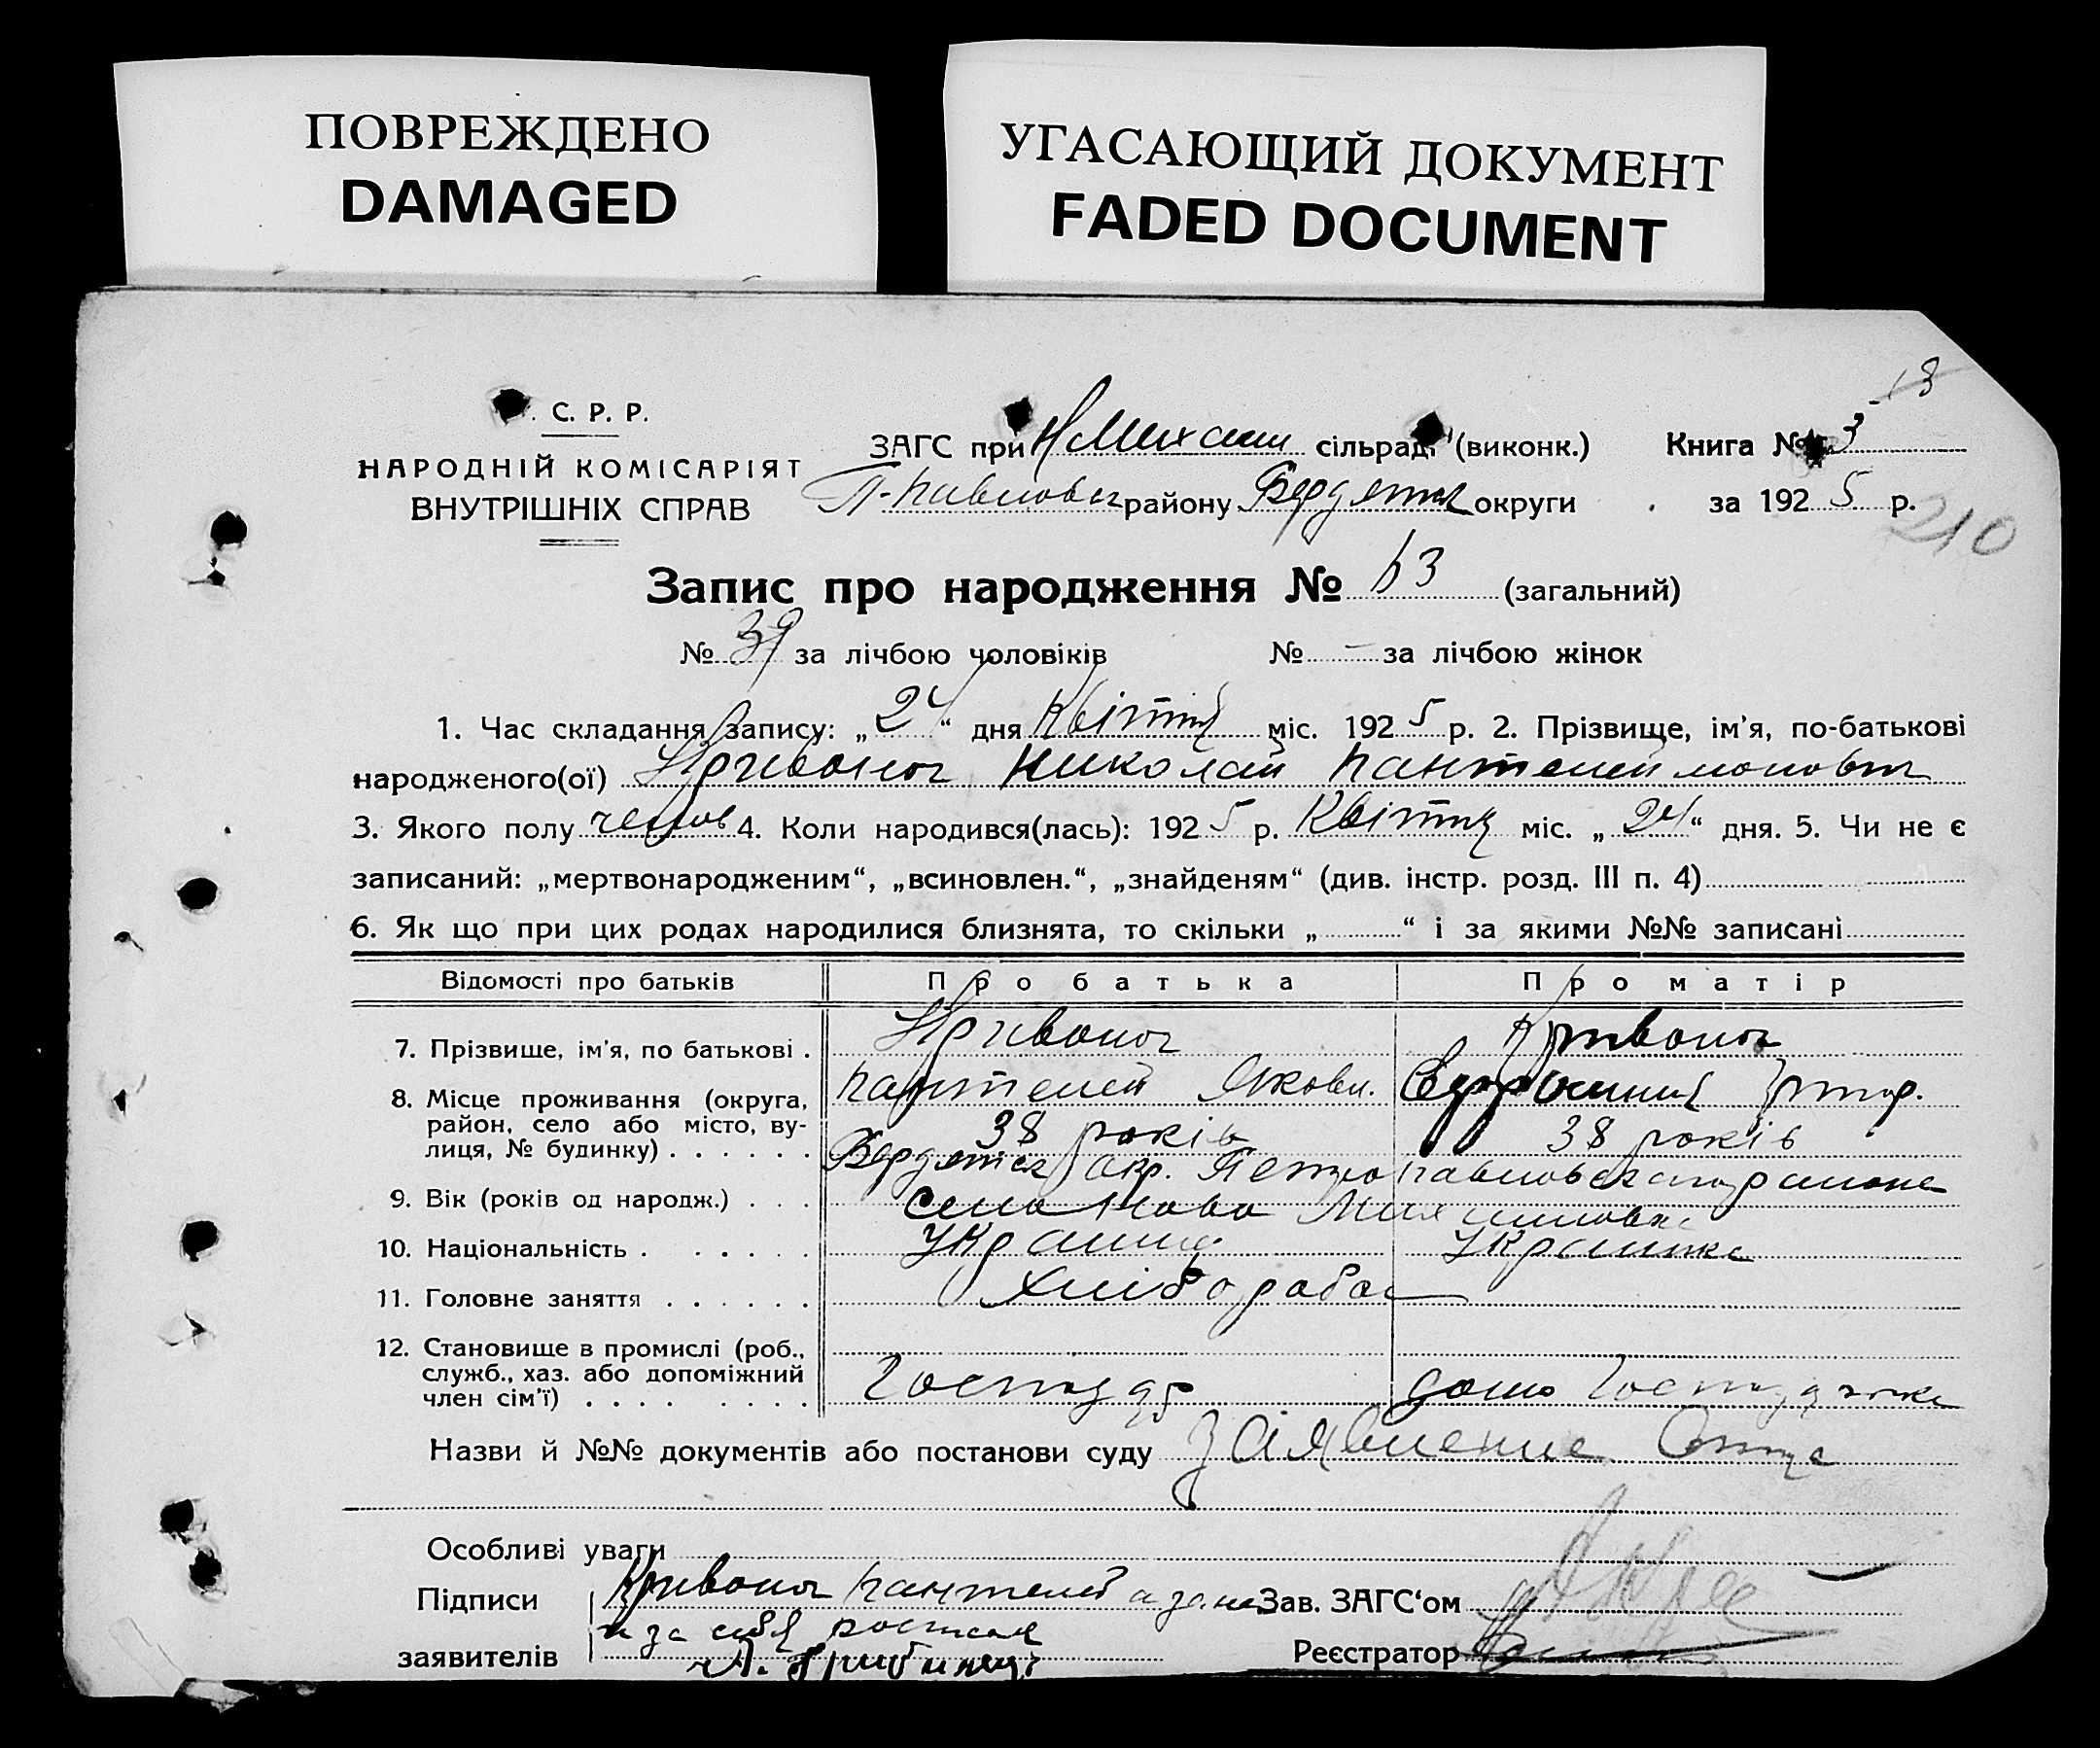 ПОВРЕЖДЕНО
DAMAGED
УГАСАЮЩИЙ ДОКУМЕНТ
FADED DOCUMENT
13
. С. Р. Р.
НАРОДНІЙ КОМІСАРІЯТ
ВНУТРІШНІХ СПРАВ
ЗАГС при НМихайл сільраді (виконк.) Книга № 3
П-Павловск району Бердянск округи за 192 5 р.
210
Запис про народження № 63 (загальний)
№ 39 за лічбою чоловіків № — за лічбою жінок
1. Час складання запису: „ 24 “ дня Квітня міс. 192 5 р. 2. Прізвище, ім'я, по-батькові
народженого(ої) Кривонос Николай Пантелеймонович
3. Якого полу 4. Коли народився(лась): 192 5 р. Квітня міс. „ 24 “ дня. 5. Чи не є
записаний: „мертвонародженим“, „всиновлен.“, „знайденям“ (див. інстр. розд. III п. 4)
6. Як що при цих родах народилися близнята, то скільки „ “ і за якими №№ записані
Відомості про батьків Про батька Про матір
7. Прізвище, ім'я, по батькові . Кривонос Кривонос
Пантелей Яковл.
8. Місце проживання (округа, район, село або місто, вулиця, № будинку) . . . . . .
38 років 38 років
Бердянск окр. Петропавловского района
9. Вік (років од народж.) . . .
село Ново Михайловка
10. Національність . . . . . . Украинц Украинка
11. Головне заняття . . . . . . Хлібороба
12. Становище в промислі (роб., служб., хаз. або допоміжний член сім'ї) . . . . . . . .
Господар домо Господарка
Назви й №№ документів або постанови суду заявление Отца
Особливі уваги
Підписи Кривонос Пантелей Зав. ЗАГС‘ом
заявителів и за себя Реєстратор